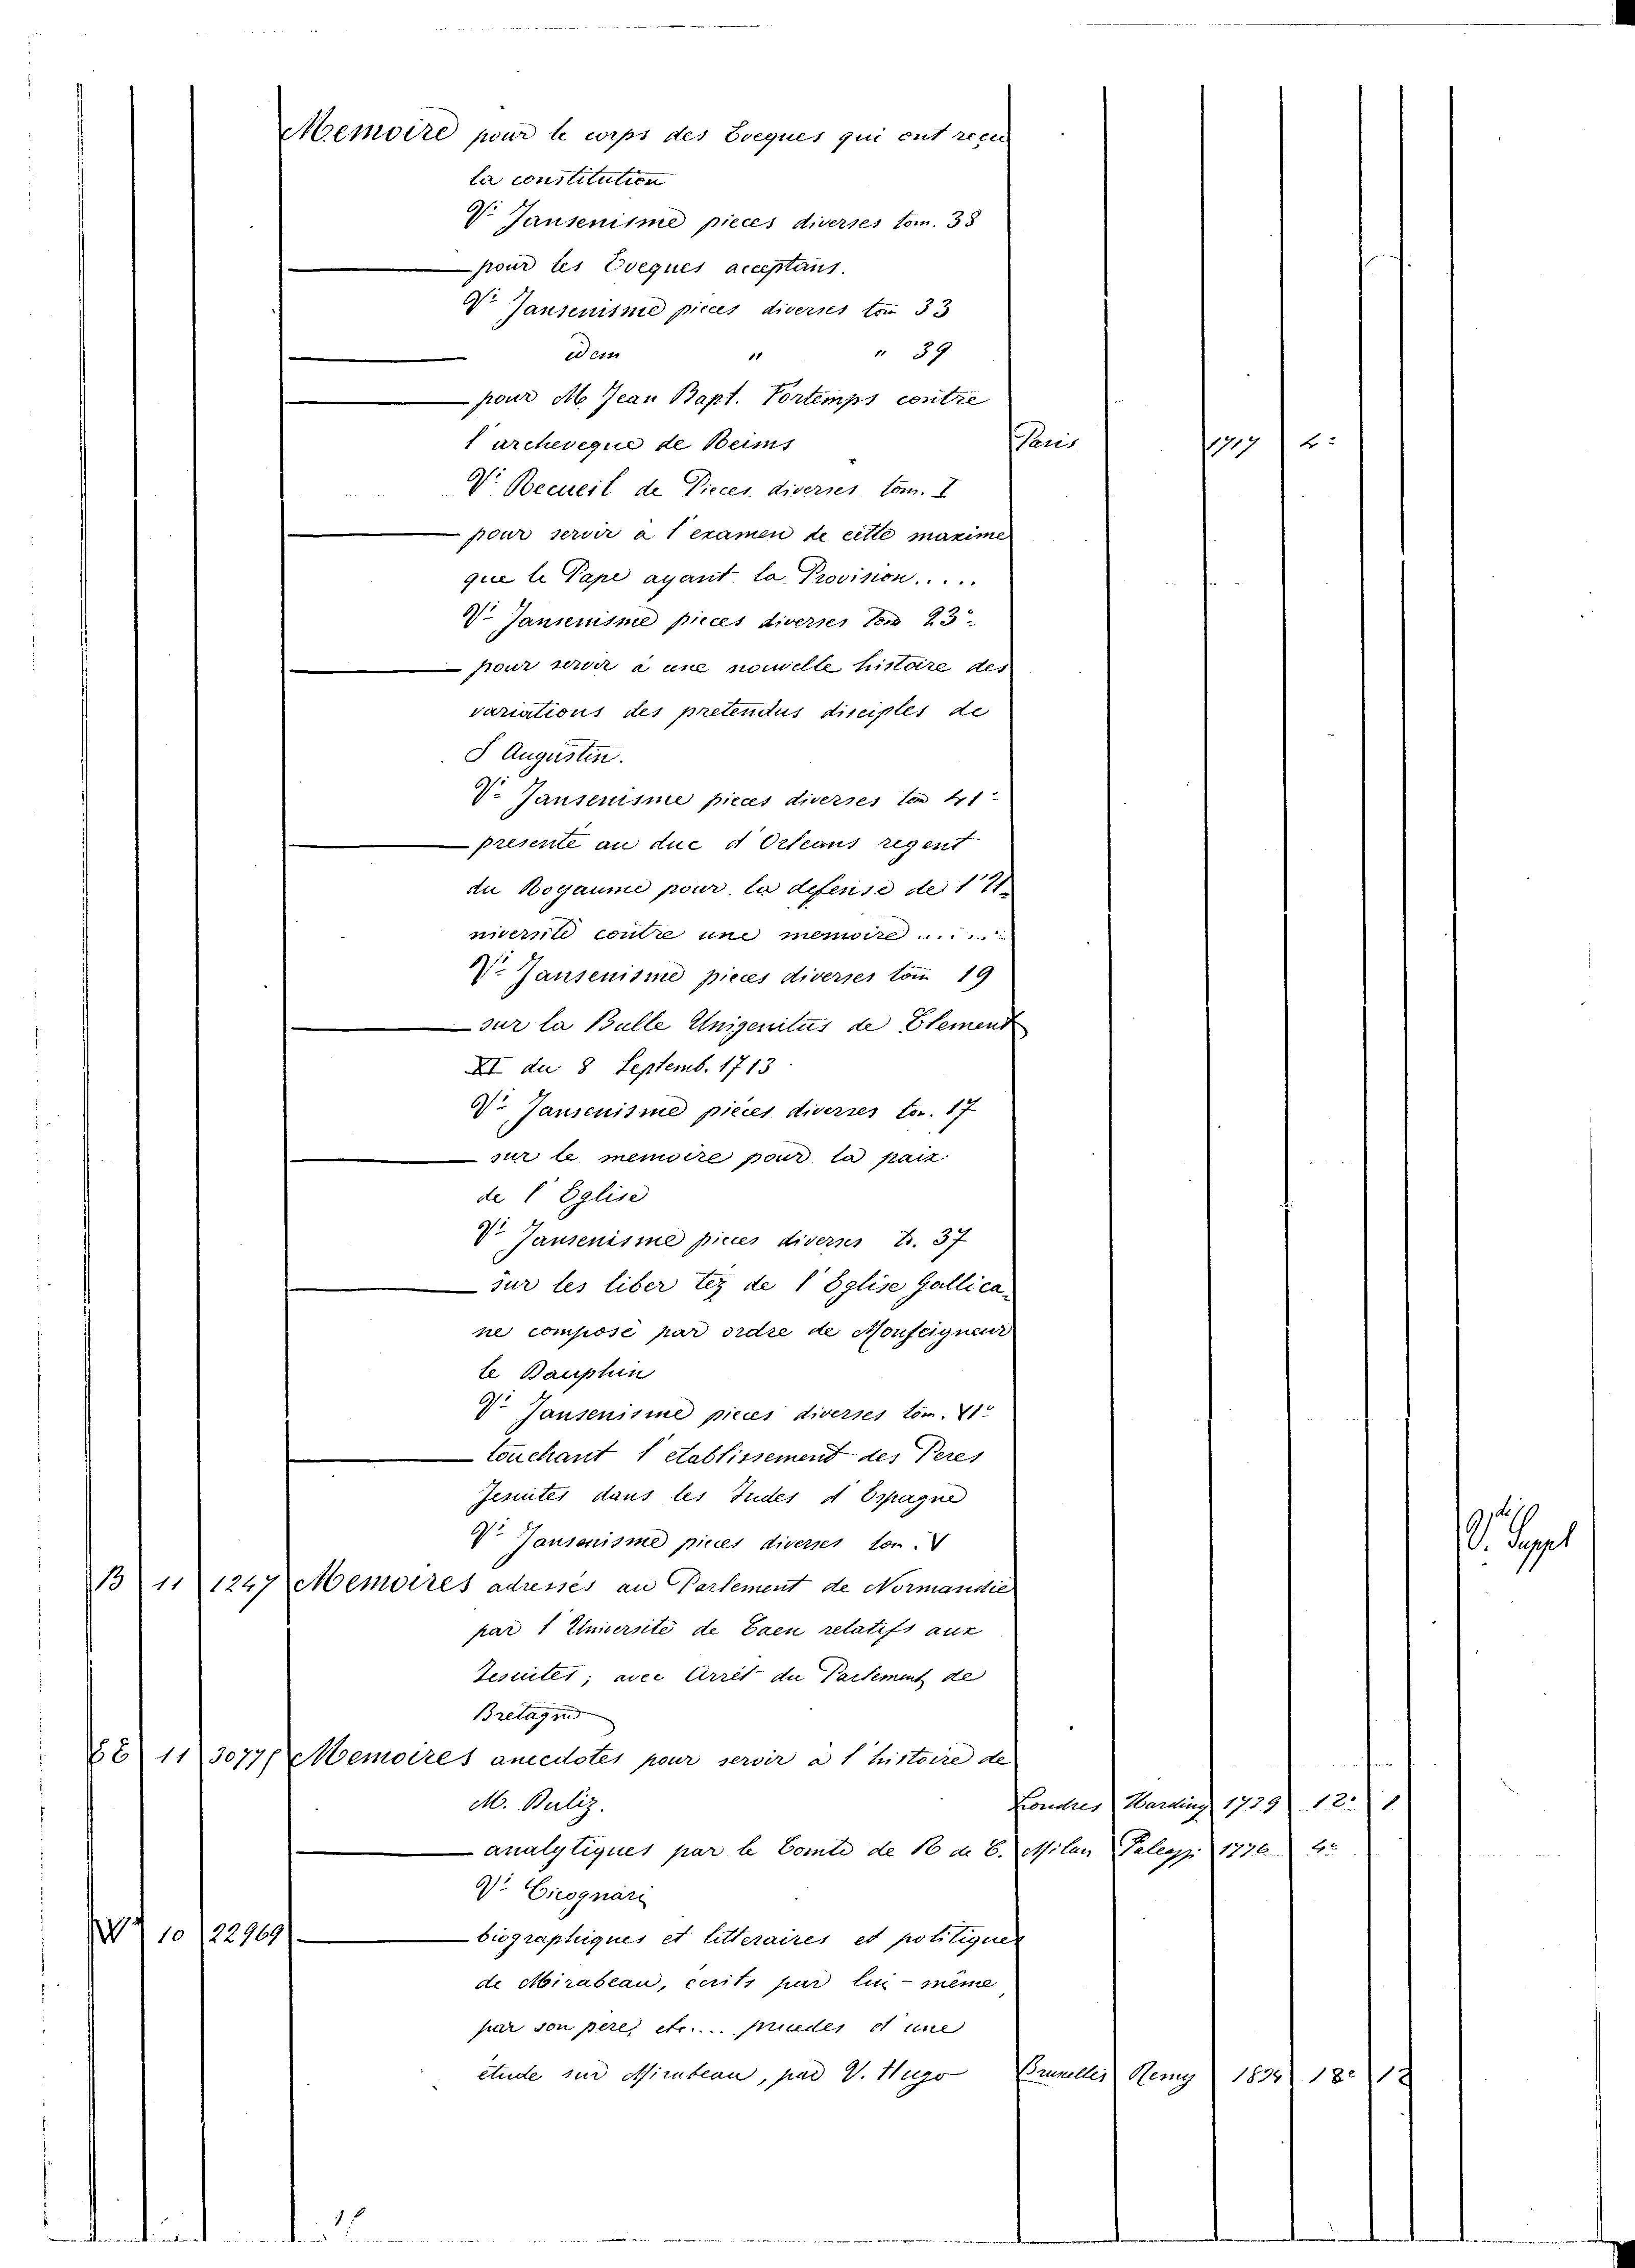 Memoire pour le corps des Eveques qui ont reçu
la constitution
Vi Jansenisme pieces diverses tom. 38
pour les Eveques acceptans.
Vi Jansenisme pieces diverses tom 33
idem " " 39
pour M. Jean Bapt. Fortemps contre
l'archeveque de Reims Paris 1717 4:
Vi Recueil de Pieces diverses tom. I
pour servir à l'examen de cette maxime
que le Pape ayant la Provision.....
Vi Jansenisme pieces diverses Tom 23
pour servir à une nouvelle histoire des
variations des pretendus disciples de
S Augustin.
Vi Jansenisme pieces diverses tom 41
presenté au duc d'Orleans regent
du Royaume pour la defense de l'U-
niversité contre une memoire .....
Vi Jansenisme pieces diverses tom 19
sur la Bulle Unigenitus de Clement
XI du 8 Septemb. 1713
Vi Jansenisme pièces diverses to. 17
sur le memoire pour la paix
de l'Eglise
Vi Jansenisme pieces diverses T. 37
sur les liber tez de l'Eglise Gallica-
ne composé par ordre de Monseigneur
le Dauphin
Vi Jansenisme pieces diverses tom.
touchant l'etablissement des Peres
Jesuites dans les Indes d'Espagne
Vi Jansenisme pieces diverses tom. V
V. Suppl
B 11 1247 Memoires adressés au Parlement de Normandie
par l'Université de Caen relatifs aux
Jesuites; avec Arrêt du Parlement de
Bretagne
11 30776 Memoires anecdotes pour servir à l'histoire de
M. Duliz. Londres Harding 1739 12: 1
analytiques par le Comte de B de C. Milan Galeazzi 1776 4:
Vi Cicognari
10 22969 biographiques et litteraires et politiques
de Mirabeau, ecrits par lui-même,
par son père, etc.... d'une
étude sur Mirabeau, par V. Hugo Bruxelles Remy 1834 18: 12